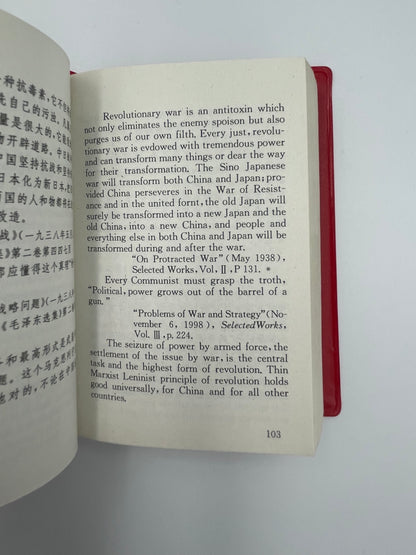 种抗毒素，它不
先自己的污浊。凡
量是很大的，它能
物开辟道路。中日
中国坚持抗战和坚
日本化为新日本，
两国的人和物都将
改造。
战》（一九三八年五
集》第二卷第四四七
都应懂得这个真理
战略问题》（一九三八
《毛泽东选集》第二
和最高形式是武
题。这个马克思列
地对的，不论在中
Revolutionary war is an antitoxin which
not only eliminates the enemy spoison but also
purges us of our own filth. Every just, revolu-
tionary war is evdowed with tremendous power
and can transform many things or dear the way
for their transformation. The Sino Japanese
war will transform both China and Japan; pro-
vided China perseveres in the War of Resist-
ance and in the united fornt, the old Japan will
surely be transformed into a new Japan and the
old China, into a new China, and people and
everything else in both China and Japan will be
transformed during and after the war.
"On Protracted War" (May 1938),
Selected Works, Vol. Ⅱ, P 131. *
Every Communist must grasp the troth,
"Political, power grows out of the barrel of a
gun."
"Problems of War and Strategy" (No-
vember 6, 1998), SelectedWorks,
Vol. Ⅲ, p. 224.
The seizure of power by armed force, the
settlement of the issue by war, is the central
task and the highest form of revolution. Thin
Marxist Leninist principle of revolution holds
good universally, for China and for all other
countries.
103